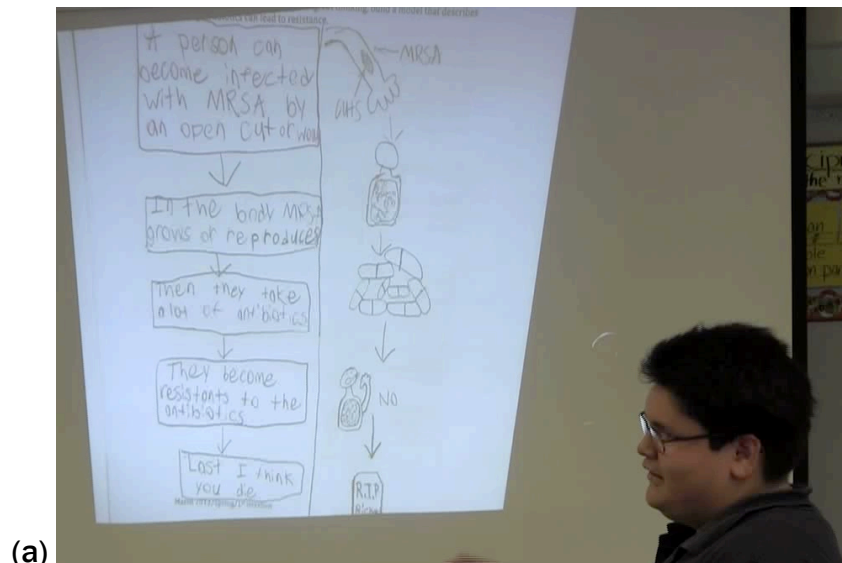 can lead to resistance.
A person can
become infected
with MRSA by
an open cut or
MRSA
In the body MRSA
grows or reproduces
Then they take
alot of antibiotics
They become
resistants to the
antibiotics
NO
Last I think
you die
R.I.P
(a)